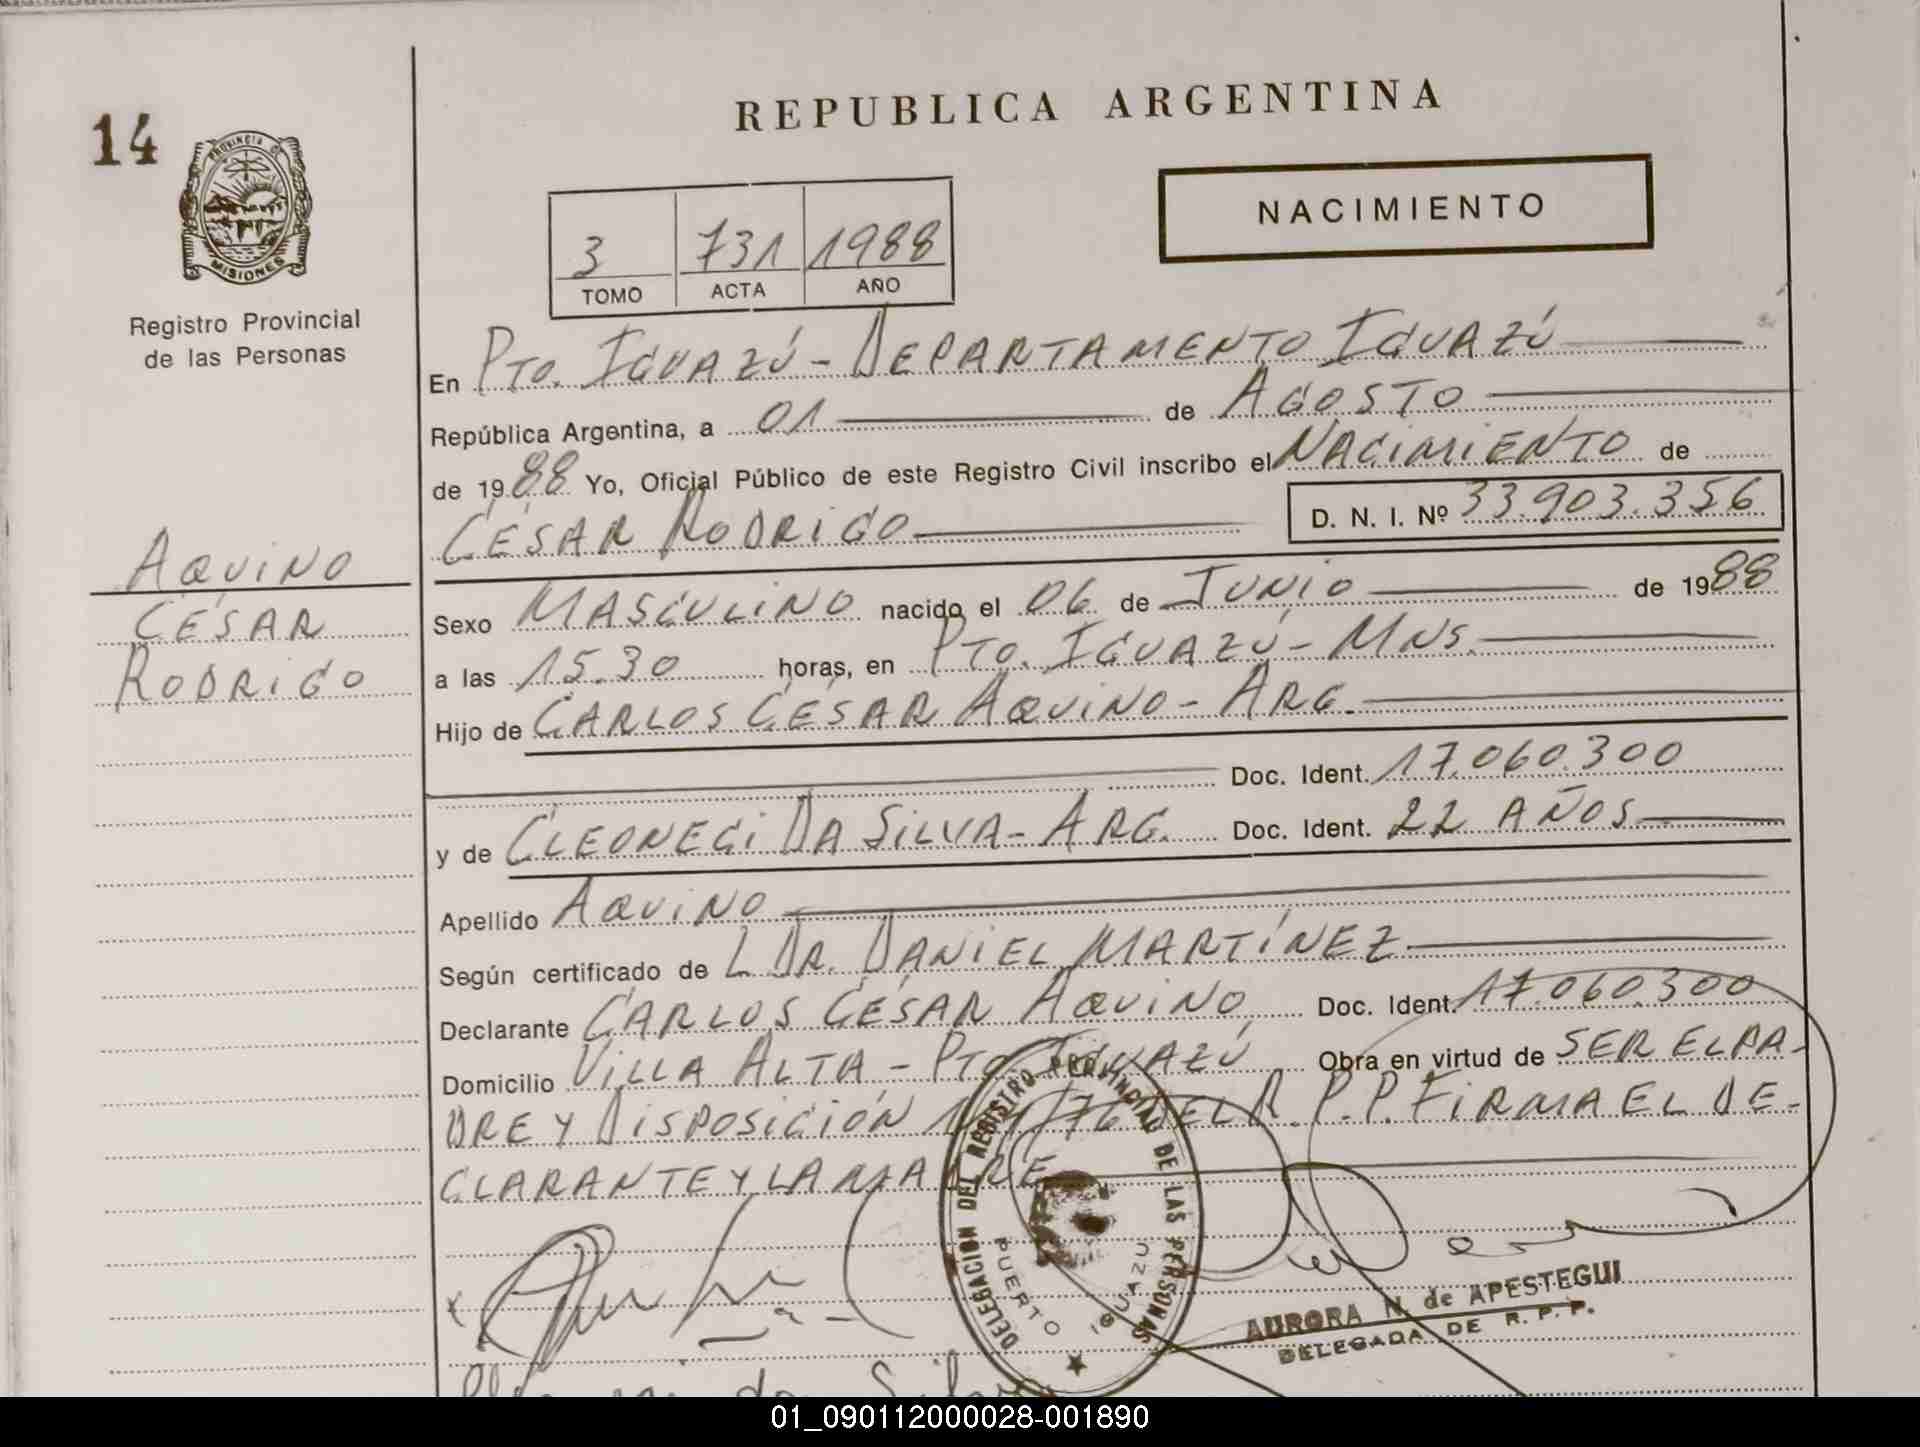 REPUBLICA ARGENTINA
14
PROVINCIA DE
MISIONES
NACIMIENTO
3 731 1988
TOMO ACTA AÑO
Registro Provincial
de las Personas
En Pto. IGUAZÚ - DEPARTAMENTO IGUAZÚ
República Argentina, a 01 de AGOSTO
de 1988 Yo, Oficial Público de este Registro Civil inscribo el NACIMIENTO de
CÉSAR RODRIGO D. N. I. Nº 33.903.356
AQUINO
CÉSAR
RODRIGO
Sexo MASCULINO nacido el 06 de JUNIO de 1988
a las 15.30 horas, en PTO. IGUAZÚ - MNS.
Hijo de CARLOS CÉSAR AQUINO - ARG.
Doc. Ident. 17.060.300
y de CLEONECI DA SILVA - ARG. Doc. Ident. 22 AÑOS
Apellido AQUINO
Según certificado de L DR. DANIEL MARTÍNEZ
Declarante CARLOS CÉSAR AQUINO Doc. Ident. 17.060.300
Domicilio VILLA ALTA - PTO. IGUAZÚ Obra en virtud de SER EL PA-
DRE Y DISPOSICIÓN /76 DEL R. P. P. FIRMA EL DE-
CLARANTE Y LA MADRE
DELEGACION DEL REGISTRO PROVINCIAL DE LAS PERSONAS
PUERTO IGUAZU
AURORA N. de APESTEGUI
DELEGADA DE R. P. P.
da Silva
01_090112000028-001890